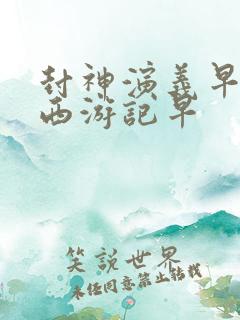 封神演義早
西游記早
笑說世界
未经同意禁止转载